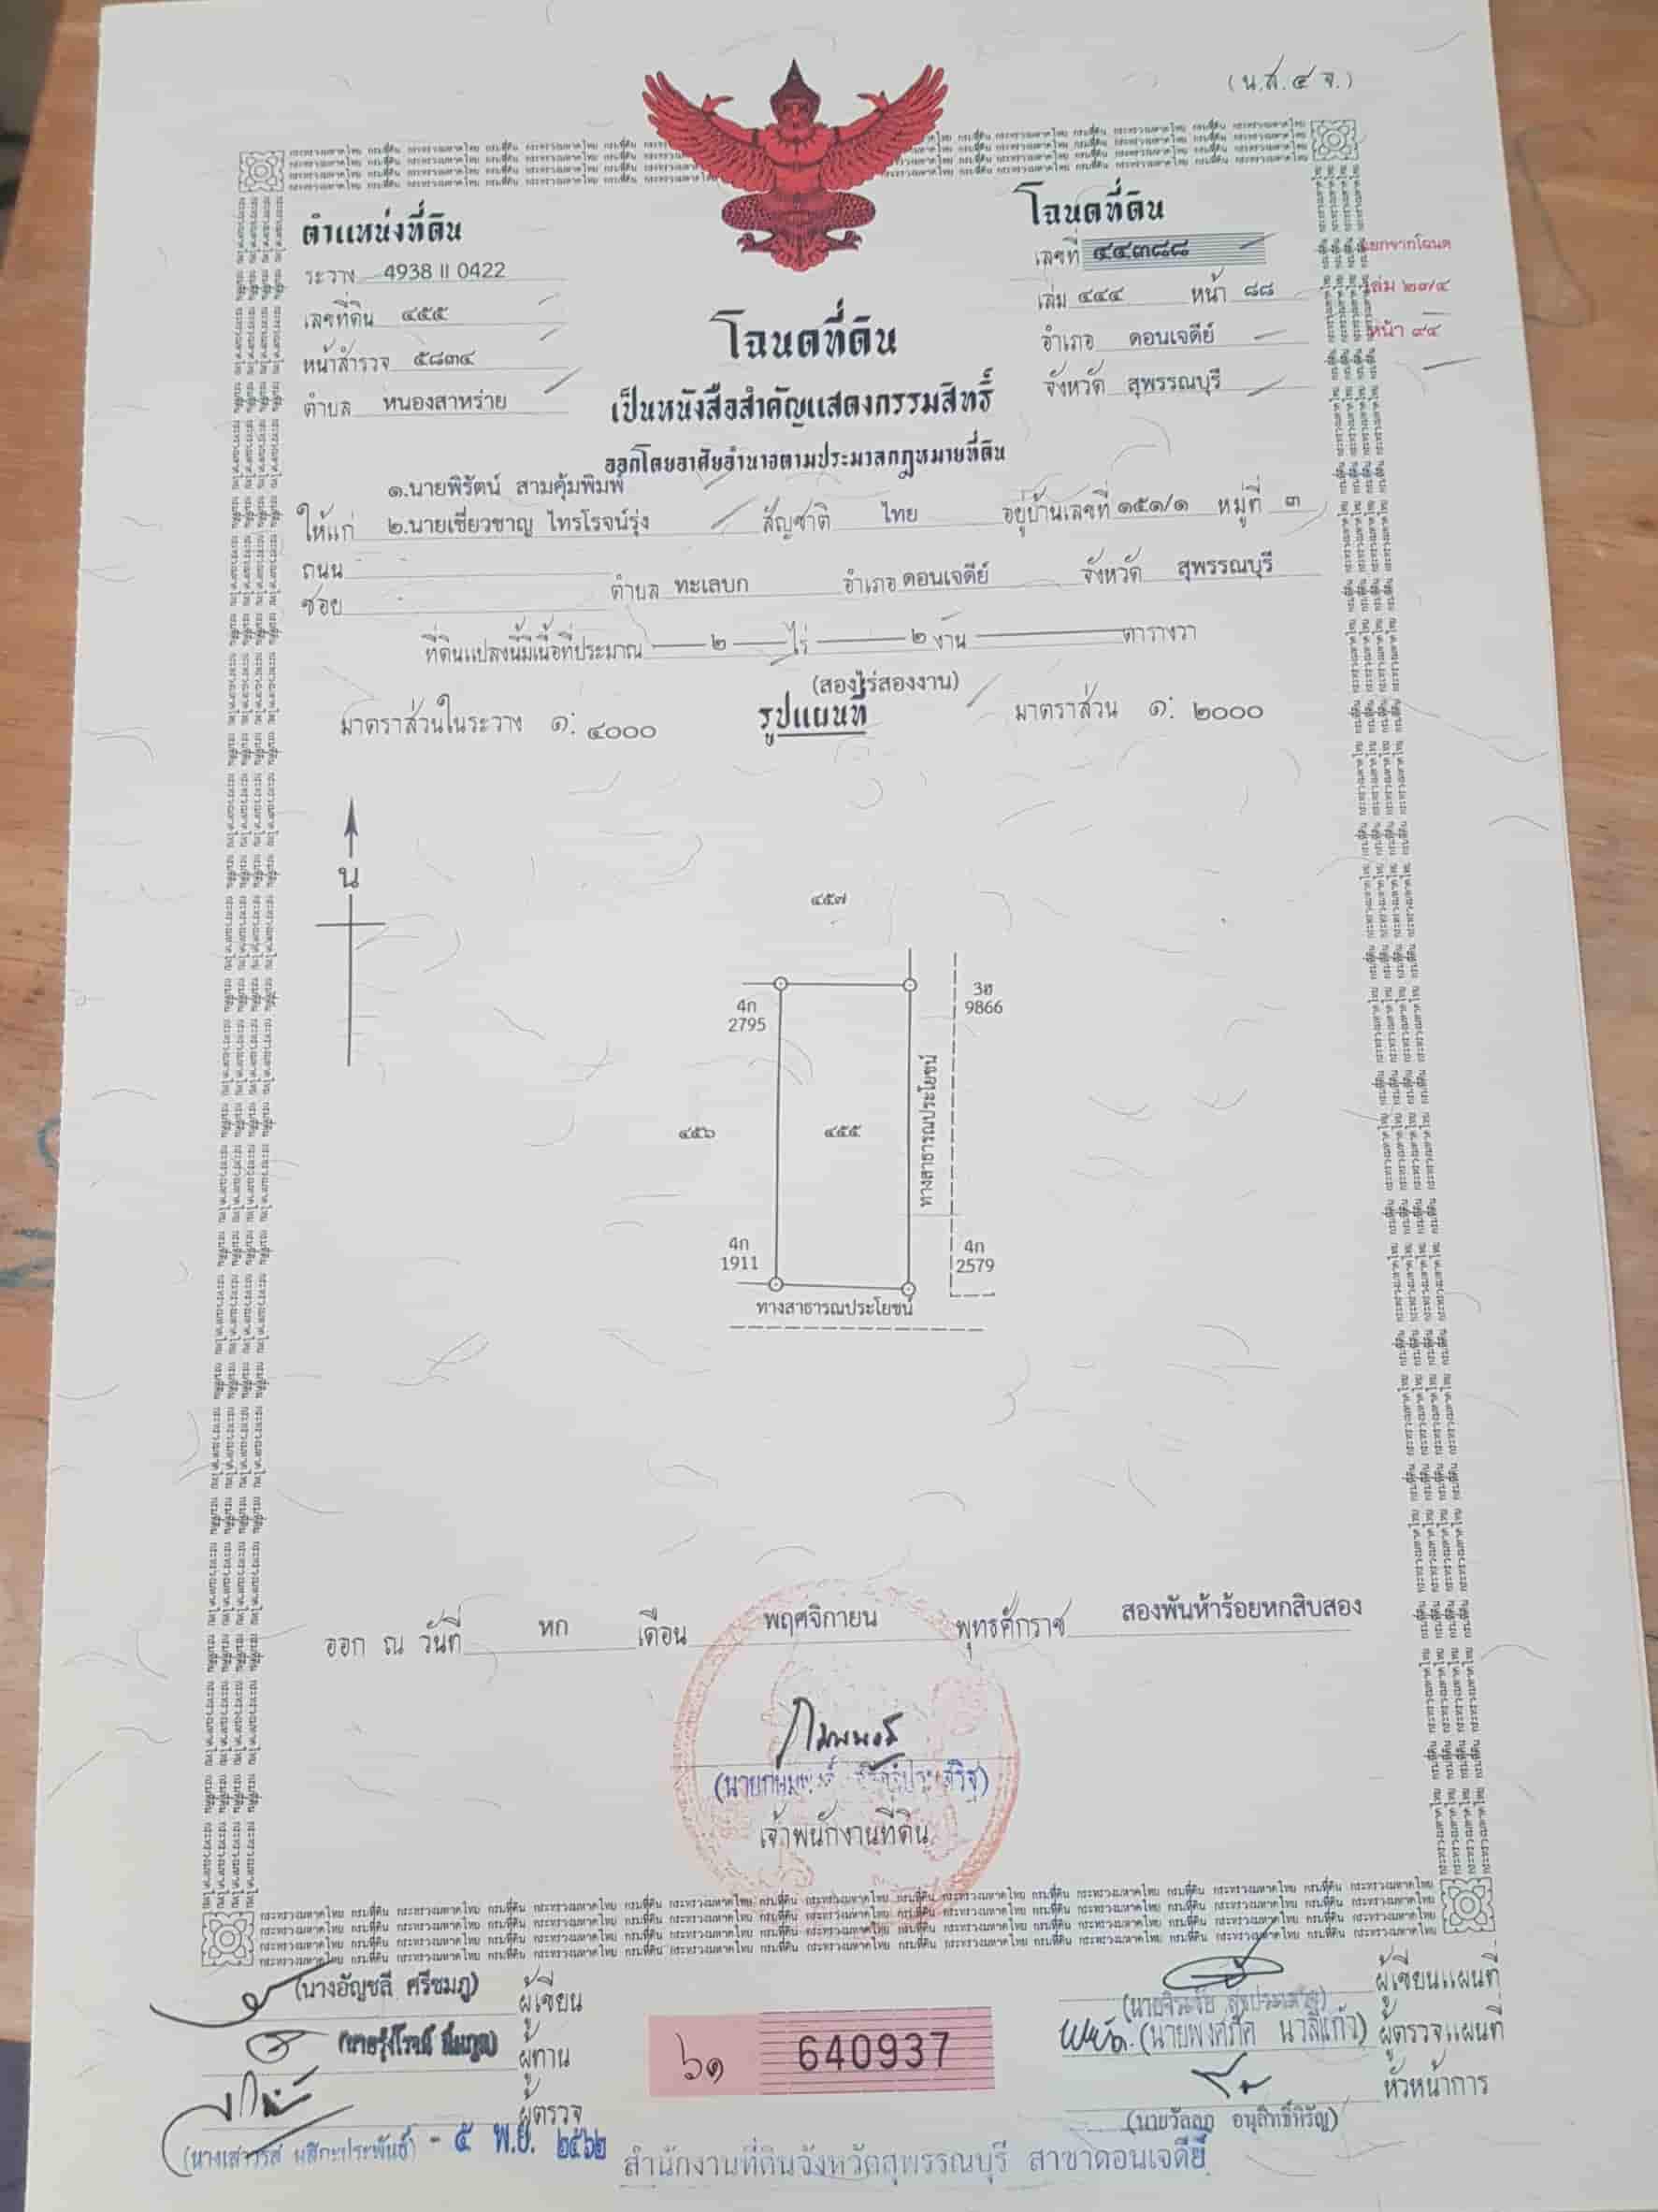 (น.ส.๔ จ.)
ตำแหน่งที่ดิน
ระวาง 4938 II 0422
เลขที่ดิน ๔๕๕
หน้าสำรวจ ๕๘๓๔
ตำบล หนองสาหร่าย
โฉนดที่ดิน
เลขที่ ๔๔๓๘๘
เล่ม ๔๔๔ หน้า ๘๘
อำเภอ ดอนเจดีย์
จังหวัด สุพรรณบุรี
แยกจากโฉนด
เล่ม ๒๗๔
หน้า ๙๔
โฉนดที่ดิน
เป็นหนังสือสำคัญแสดงกรรมสิทธิ์
ออกโดยอาศัยอำนาจตามประมวลกฎหมายที่ดิน
๑.นายพิรัตน์ สามคุ้มพิมพ์
ให้แก่ ๒.นายเชี่ยวชาญ ไทรโรจน์รุ่ง สัญชาติ ไทย อยู่บ้านเลขที่ ๑๕๑/๑ หมู่ที่ ๓
ถนน -
ซอย - ตำบล ทะเลบก อำเภอ ดอนเจดีย์ จังหวัด สุพรรณบุรี
ที่ดินแปลงนี้มีเนื้อที่ประมาณ ๒ ไร่ ๒ งาน ตารางวา
(สองไร่สองงาน)
มาตราส่วนในระวาง ๑: ๔๐๐๐ รูปแผนที่ มาตราส่วน ๑: ๒๐๐๐
น
๔๕๗
4ก
2795
3ฮ
9866
๔๕๖
๔๕๕
ทางสาธารณประโยชน์
4ก
1911
4ก
2579
ทางสาธารณประโยชน์
ออก ณ วันที่ หก เดือน พฤศจิกายน พุทธศักราช สองพันห้าร้อยหกสิบสอง
เจ้าพนักงานที่ดิน
(นางอัญชลี ศรีชมภู) ผู้เขียน
ผู้ทาน
ผู้ตรวจ
- ๕ พ.ย. ๒๕๖๒
๖๑ 640937
ผู้เขียนแผนที่
(นายพงศภัค นวลแก้ว) ผู้ตรวจแผนที่
หัวหน้าการ
(นายวัลลภ อนุสิทธิ์หิรัญ)
สำนักงานที่ดินจังหวัดสุพรรณบุรี สาขาดอนเจดีย์